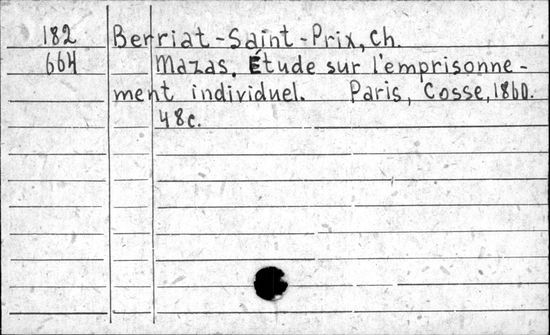 182 Berriat-Saint-Prix, Ch.
664 Mazas. Étude sur l'emprisonne-
ment individuel. Paris, Cosse, 1860.
48c.